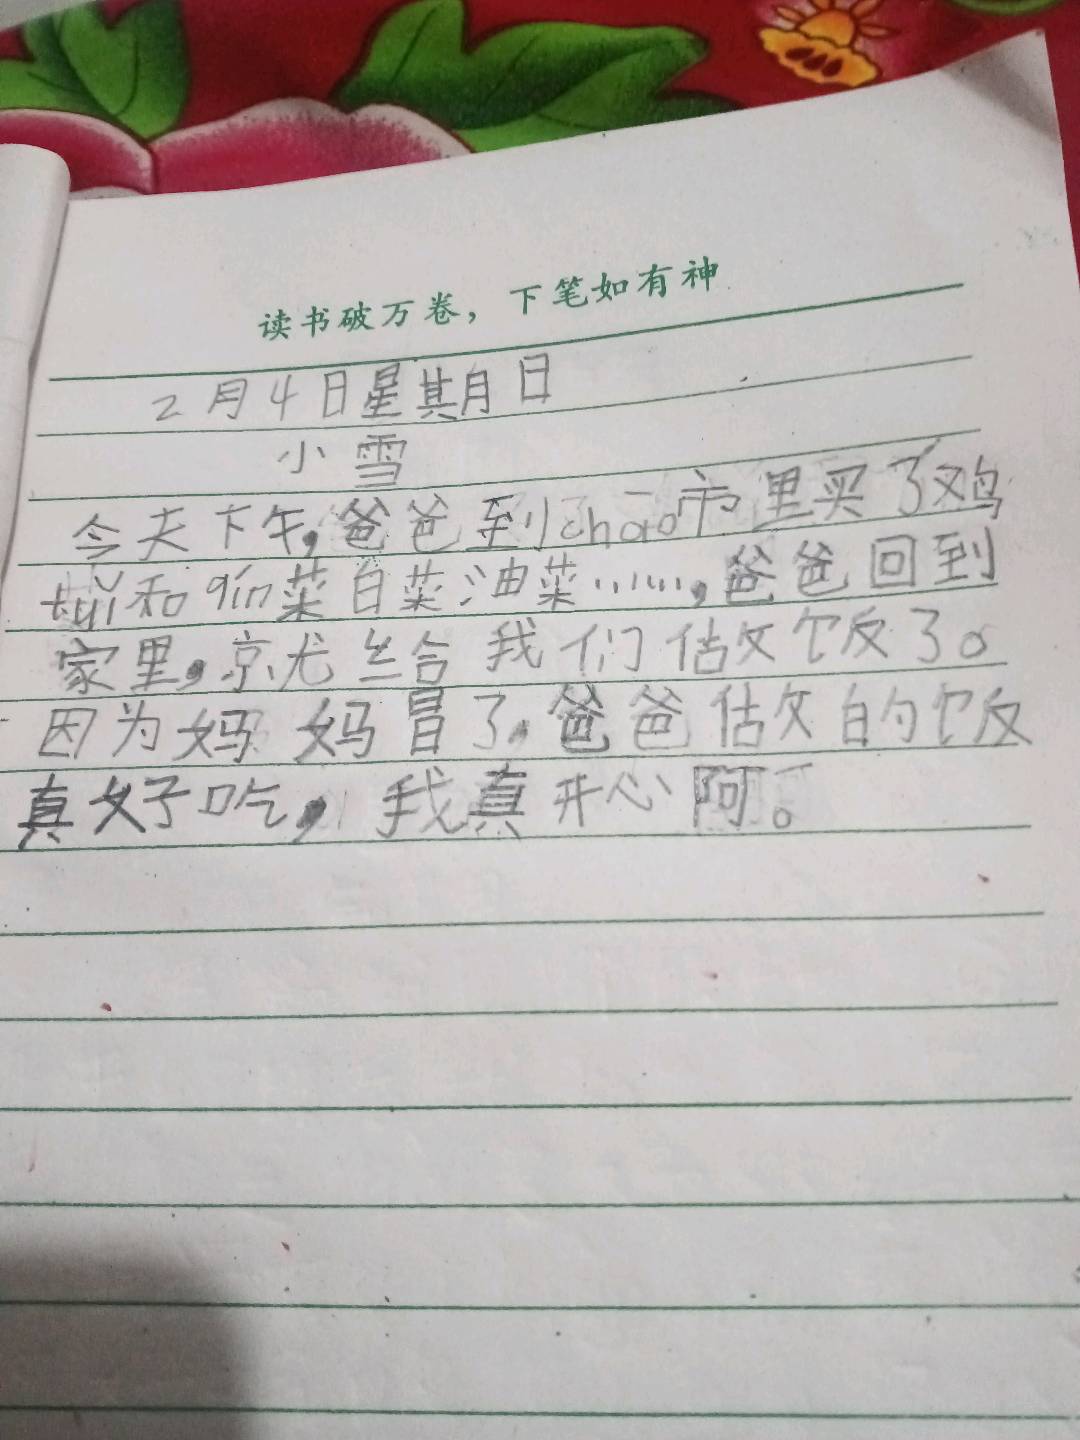 读书破万卷，下笔如有神
2月4日星期日
小雪
今天下午，爸爸到chao市里买了鸡
tuǐ和qin菜白菜油菜……，爸爸回到
家里，就给我们做饭了。
因为妈妈冒了，爸爸做的饭
真好吃，我真开心阿。